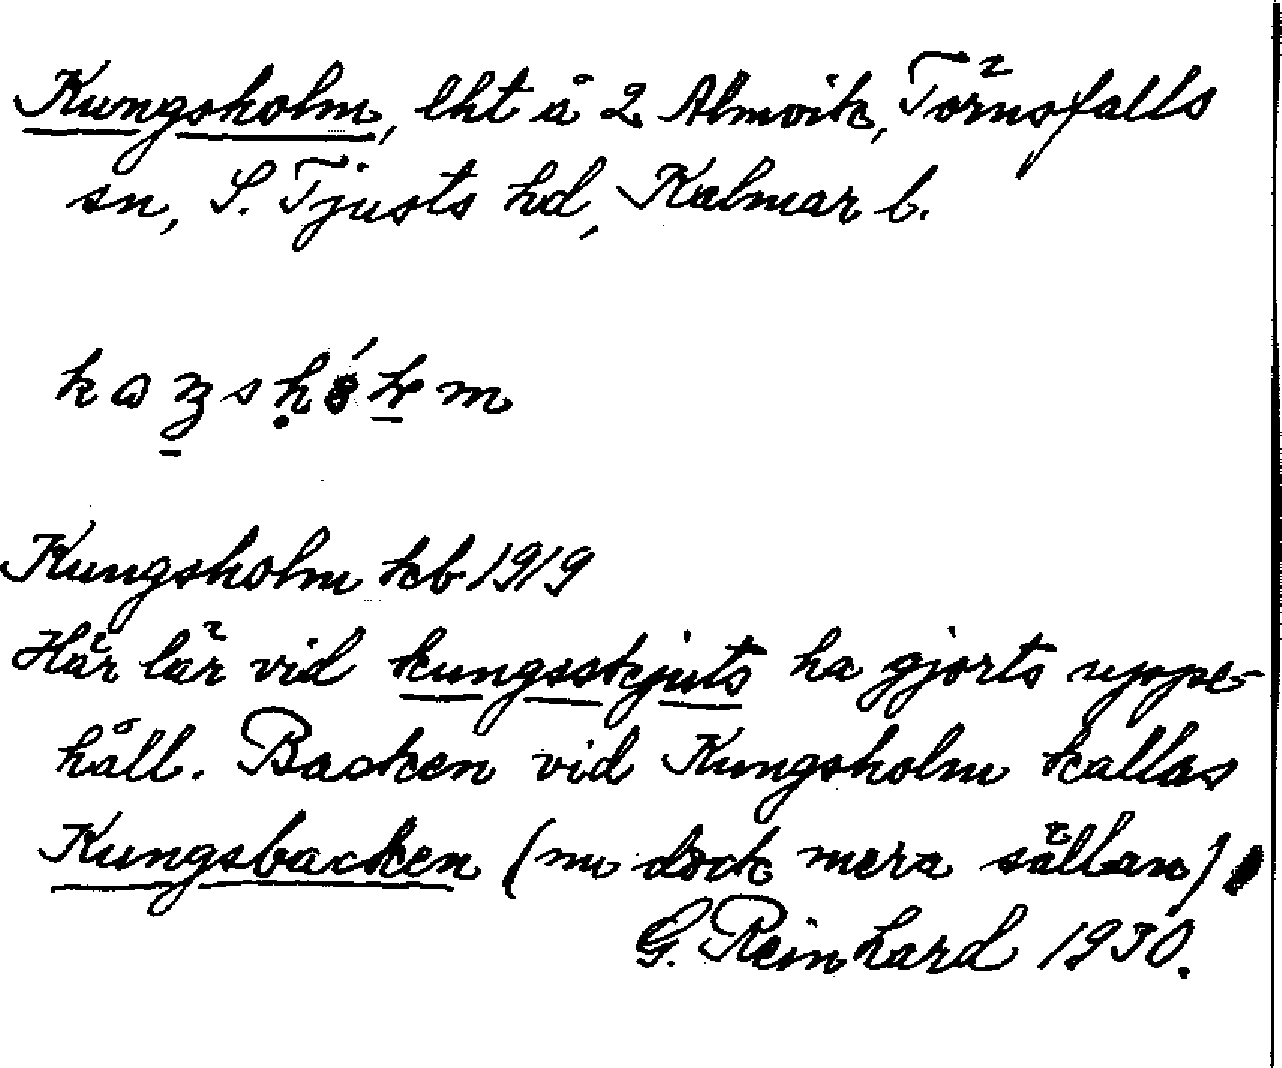 Kungsholm, lht å 2 Almvik, Törnsfalls
sn, S. Tjusts hd, Kalmar l.
Kungsholm kb 1919
Här lär vid kungsskjuts ha gjorts uppe-
håll. Backen vid Kungsholm kallas
Kungsbacken (nu dock mera sällan).
G. Reinhard 1930.